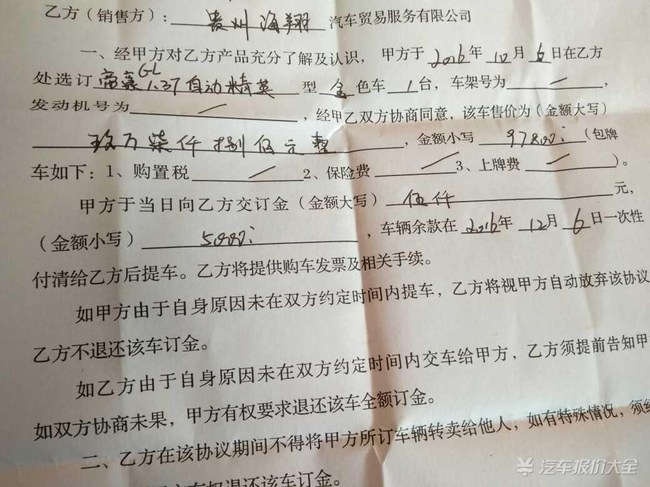 乙方（销售方）：贵州海翔汽车贸易服务有限公司
一、经甲方对乙方产品充分了解及认识，甲方于2016年10月6日在乙方
处选订帝豪GL 1.3T自动精英型金色车1台，车架号为/，
发动机号为/，经甲乙双方协商同意，该车售价为（金额大写）
玖万柒仟捌佰元整，金额小写97800（包牌
车如下：1、购置税/2、保险费/3、上牌费/）。
甲方于当日向乙方交订金（金额大写）伍仟元，
（金额小写）5000，车辆余款在2016年12月6日一次性
付清给乙方后提车。乙方将提供购车发票及相关手续。
如甲方由于自身原因未在双方约定时间内提车，乙方将视甲方自动放弃该协议
乙方不退还该车订金。
如乙方由于自身原因未在双方约定时间内交车给甲方，乙方须提前告知甲
如双方协商未果，甲方有权要求退还该车全额订金。
二、乙方在该协议期间不得将甲方所订车辆转卖给他人，如有特殊情况，须经
权退还该车订金。
汽车报价大全